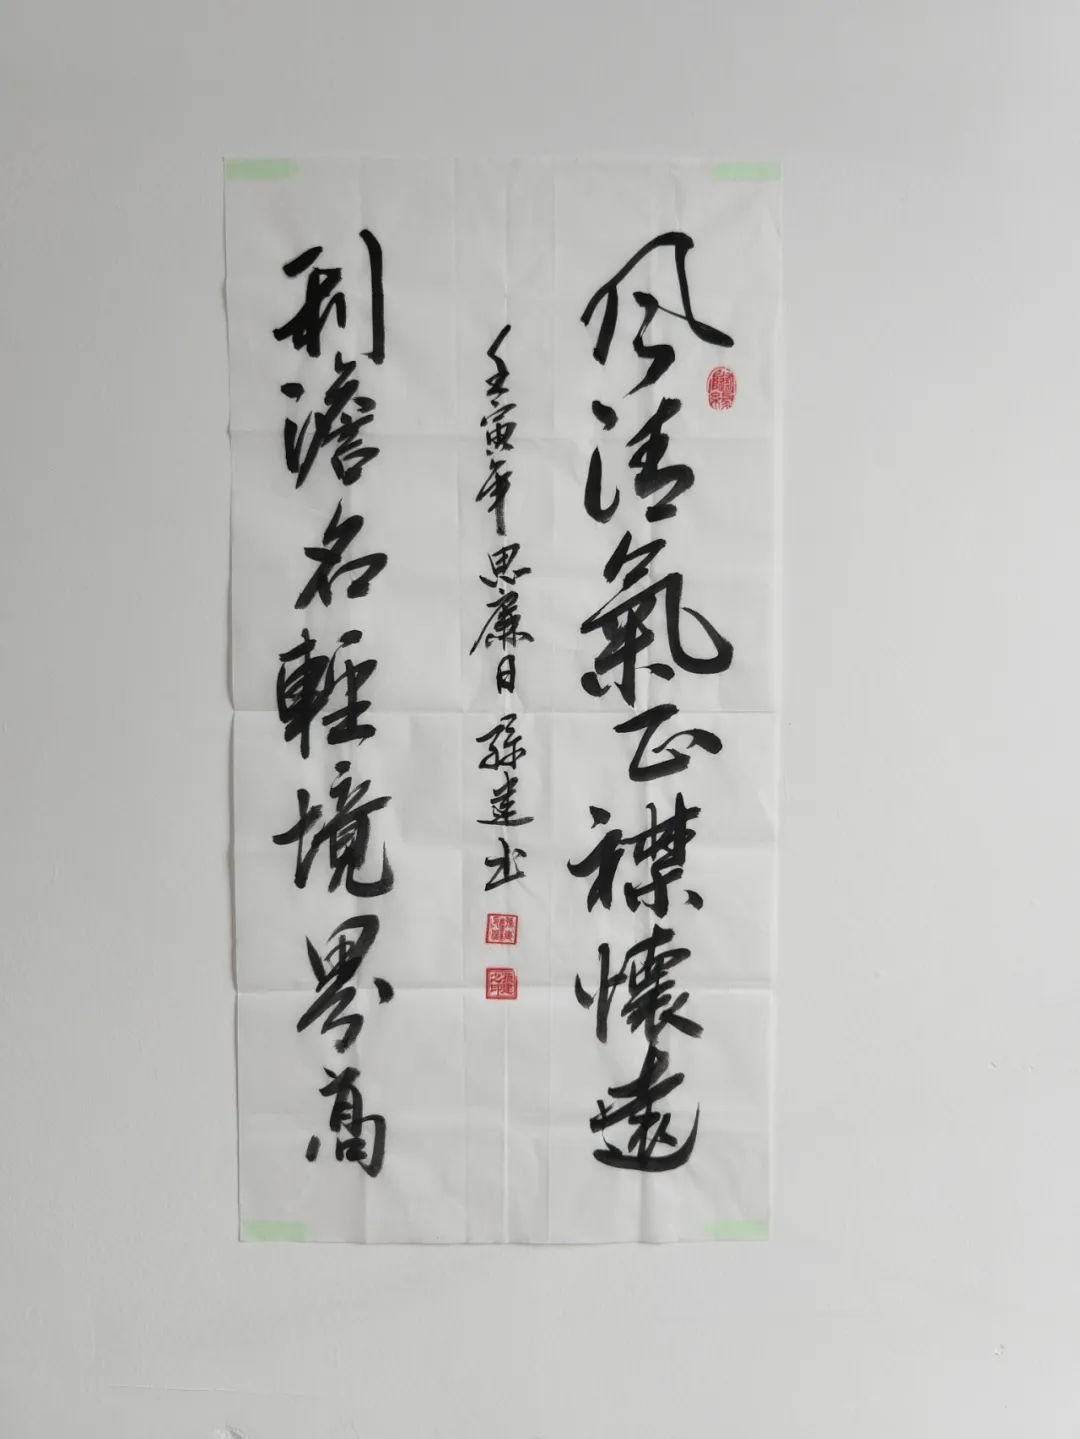 风清氣正襟懷遠
壬寅年思廉日孫建书
利澹名輕境界高